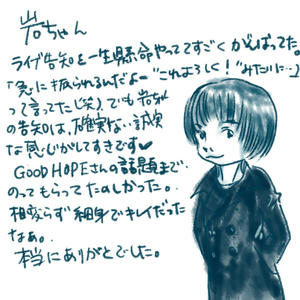 岩ちゃん
ライブ告知を一生懸命やっててすごくがんばってた。
「急に振られるんだよー"これよろしく!"みたいに…」
って言ってた(笑)でも岩ちゃん
の告知は、確実な・誠実
な感じがしてすきです♥
GOOD HOPEさんの話題まで
のってもらってたのしかった。
相変らず細身でキレイだった
なぁ。
本当にありがとでした。